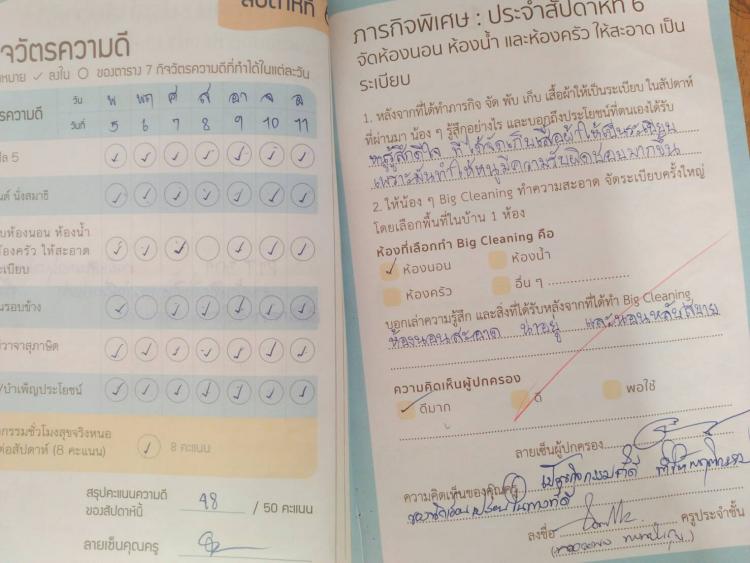 สัปดาห์ที่
กิจวัตรความดี
หมาย ✓ ลงใน ○ ของตาราง 7 กิจวัตรความดีที่ทำได้ในแต่ละวัน
ความดี วัน พ พฤ ศ ส อา จ อ
วันที่ 5 6 7 8 9 10 11
ศีล 5
นั่งสมาธิ
ห้องนอน ห้องน้ำ
ห้องครัว ให้สะอาด
ระเบียบ
รอบข้าง
วาจาสุภาษิต
/บำเพ็ญประโยชน์
กรรมชั่วโมงสุขจริงหนอ
ต่อสัปดาห์ (8 คะแนน) ✓ 8 คะแนน
สรุปคะแนนความดี
ของสัปดาห์นี้ 48 / 50 คะแนน
ลายเซ็นคุณครู
ภารกิจพิเศษ : ประจำสัปดาห์ที่ 6
จัดห้องนอน ห้องน้ำ และห้องครัว ให้สะอาด เป็น
ระเบียบ
1. หลังจากที่ได้ทำภารกิจ จัด พับ เก็บ เสื้อผ้าให้เป็นระเบียบ ในสัปดาห์
ที่ผ่านมา น้อง ๆ รู้สึกอย่างไร และบอกถึงประโยชน์ที่ตนเองได้รับ
หนูรู้สึกดีใจ ที่ได้จัดเก็บเสื้อผ้าให้เป็นระเบียบ
เพราะมันทำให้หนูมีความรับผิดชอบมากขึ้น
2. ให้น้อง ๆ Big Cleaning ทำความสะอาด จัดระเบียบครั้งใหญ่
โดยเลือกพื้นที่ในบ้าน 1 ห้อง
ห้องที่เลือกทำ Big Cleaning คือ
✓ ห้องนอน ห้องน้ำ
ห้องครัว อื่น ๆ
บอกเล่าความรู้สึก และสิ่งที่ได้รับหลังจากที่ได้ทำ Big Cleaning
ห้องนอนสะอาด น่าอยู่ และนอนหลับสบาย
ความคิดเห็นผู้ปกครอง
✓ ดีมาก ดี พอใช้
ลายเซ็นผู้ปกครอง
ความคิดเห็นของคุณครู
ลงชื่อ ครูประจำชั้น